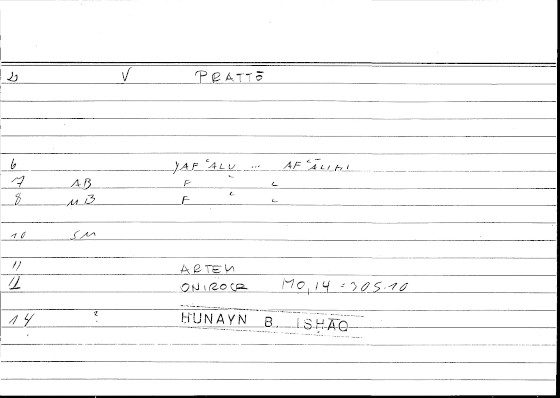 2 V PRATTŌ
6 YAFʿALU ... AFʿĀLIHI
7 AB F ʿ L
8 MB F ʿ L
10 SM
11 ARTEM
12 ONIROCR MO,14 = 305.10
14 ? HUNAYN B. ISHAQ